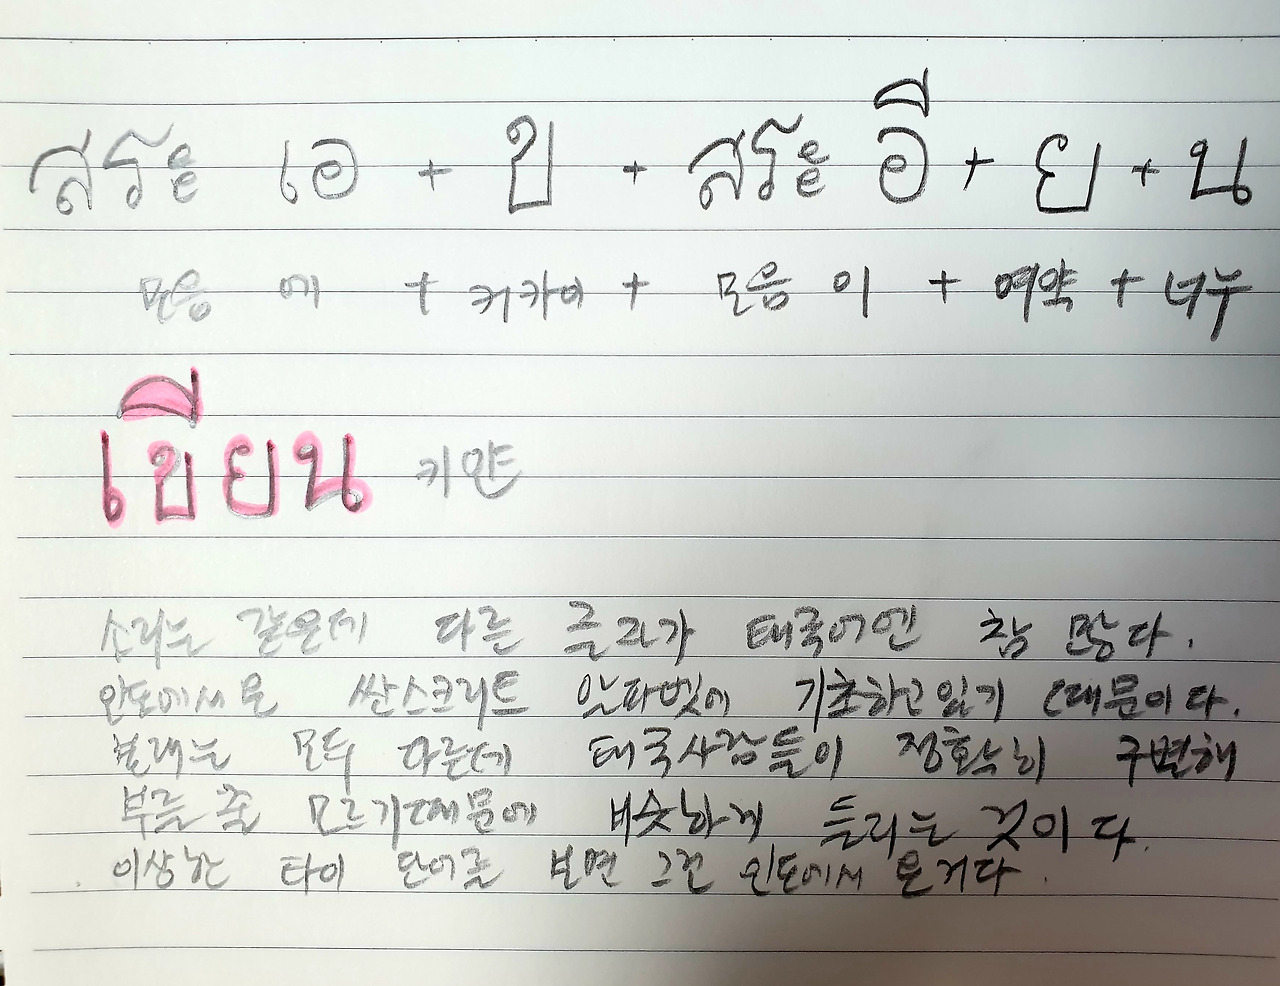 สระ เอ + ข + สระ อี + ย + น
모음 에 + 커카이 + 모음 이 + 여약 + 너누
เขียน 키얀
소리는 같은데 다른 글자가 태국어엔 참 많다.
인도에서 온 싼스크리트 알파벳에 기초하고 있기 때문이다.
본래는 모두 다른데 태국사람들이 정확히 구변해
부를 줄 모르기때문에 비슷하게 들리는 것이다.
이상한 타이 단어를 보면 그건 인도에서 온거다.